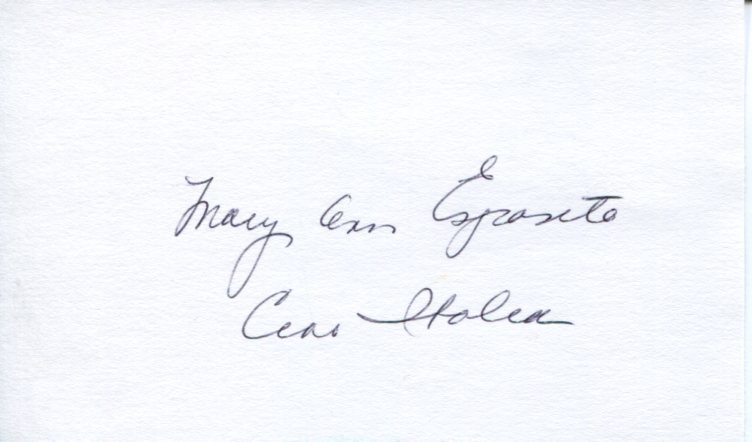 Mary Ann Esposito
Ciao Italia